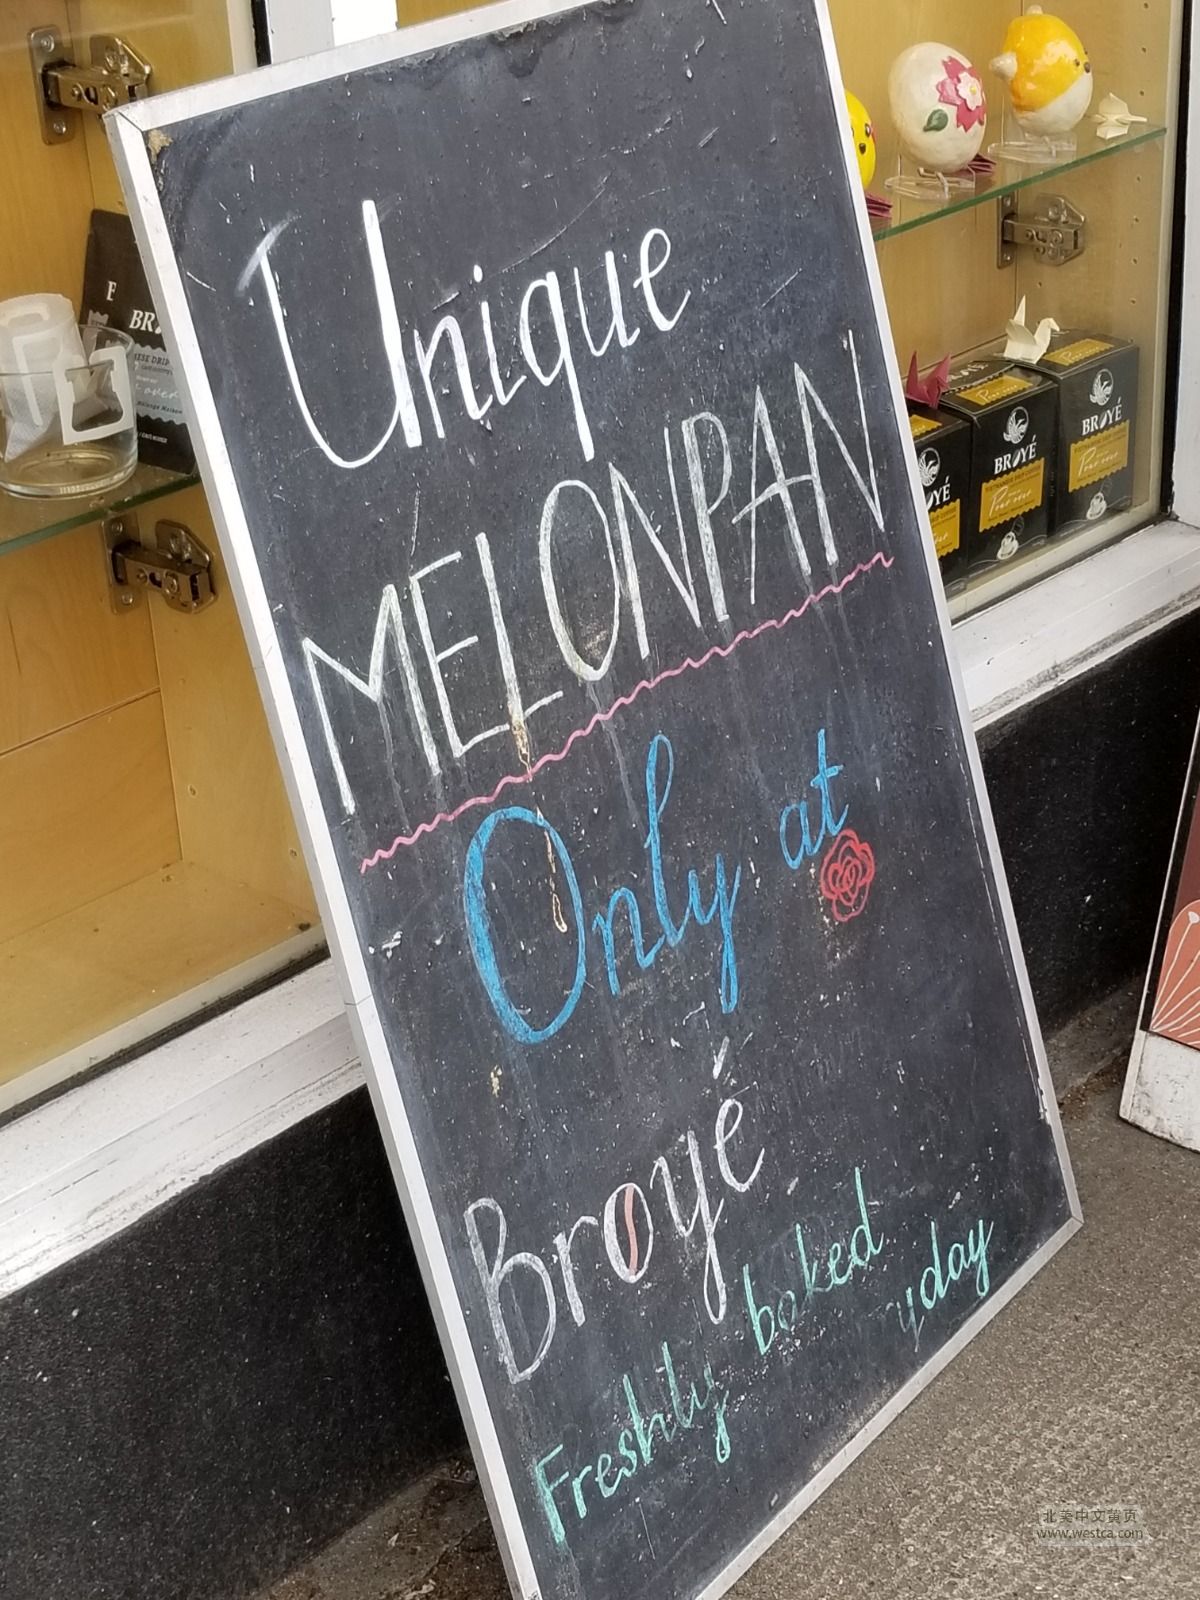 Unique
MELONPAN
Only at
Broyé
Freshly baked
yday
BROYÉ
BROYÉ
Pour over
北美中文黄页
www.westca.com